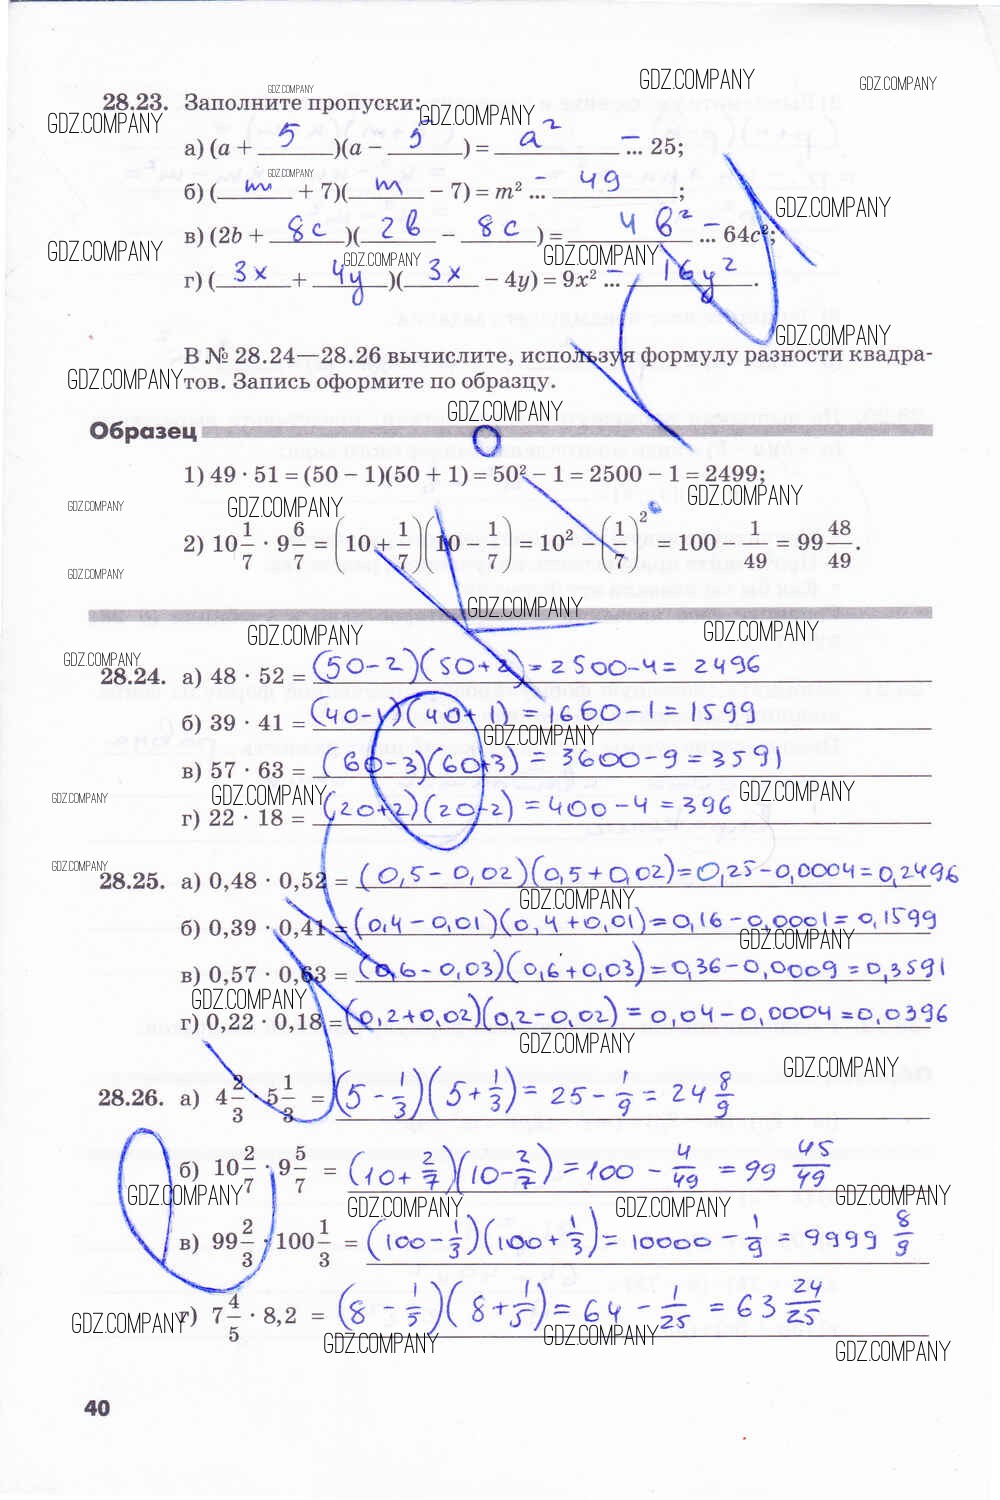 28.23. Заполните пропуски:
а) (a + 5)(a − 5) = a² − ... 25;
б) (m + 7)(m − 7) = m² ... − 49;
в) (2b + 8c)(2b − 8c) = 4b² − ... 64c²;
г) (3x + 4y)(3x − 4y) = 9x² ... − 16y².
В № 28.24—28.26 вычислите, используя формулу разности квадра-
тов. Запись оформите по образцу.
Образец
1) 49 · 51 = (50 − 1)(50 + 1) = 50² − 1 = 2500 − 1 = 2499;
2) 10 1/7 · 9 6/7 = (10 + 1/7)(10 − 1/7) = 10² − (1/7)² = 100 − 1/49 = 99 48/49.
28.24. а) 48 · 52 = (50−2)(50+2) = 2500−4 = 2496
б) 39 · 41 = (40−1)(40+1) = 1600−1 = 1599
в) 57 · 63 = (60−3)(60+3) = 3600−9 = 3591
г) 22 · 18 = (20+2)(20−2) = 400−4 = 396
28.25. а) 0,48 · 0,52 = (0,5−0,02)(0,5+0,02) = 0,25−0,0004 = 0,2496
б) 0,39 · 0,41 = (0,4−0,01)(0,4+0,01) = 0,16−0,0001 = 0,1599
в) 0,57 · 0,63 = (0,6−0,03)(0,6+0,03) = 0,36−0,0009 = 0,3591
г) 0,22 · 0,18 = (0,2+0,02)(0,2−0,02) = 0,04−0,0004 = 0,0396
28.26. а) 4 2/3 · 5 1/3 = (5 − 1/3)(5 + 1/3) = 25 − 1/9 = 24 8/9
б) 10 2/7 · 9 5/7 = (10 + 2/7)(10 − 2/7) = 100 − 4/49 = 99 45/49
в) 99 2/3 · 100 1/3 = (100 − 1/3)(100 + 1/3) = 10000 − 1/9 = 9999 8/9
г) 7 4/5 · 8,2 = (8 − 1/5)(8 + 1/5) = 64 − 1/25 = 63 24/25
40
GDZ.COMPANY